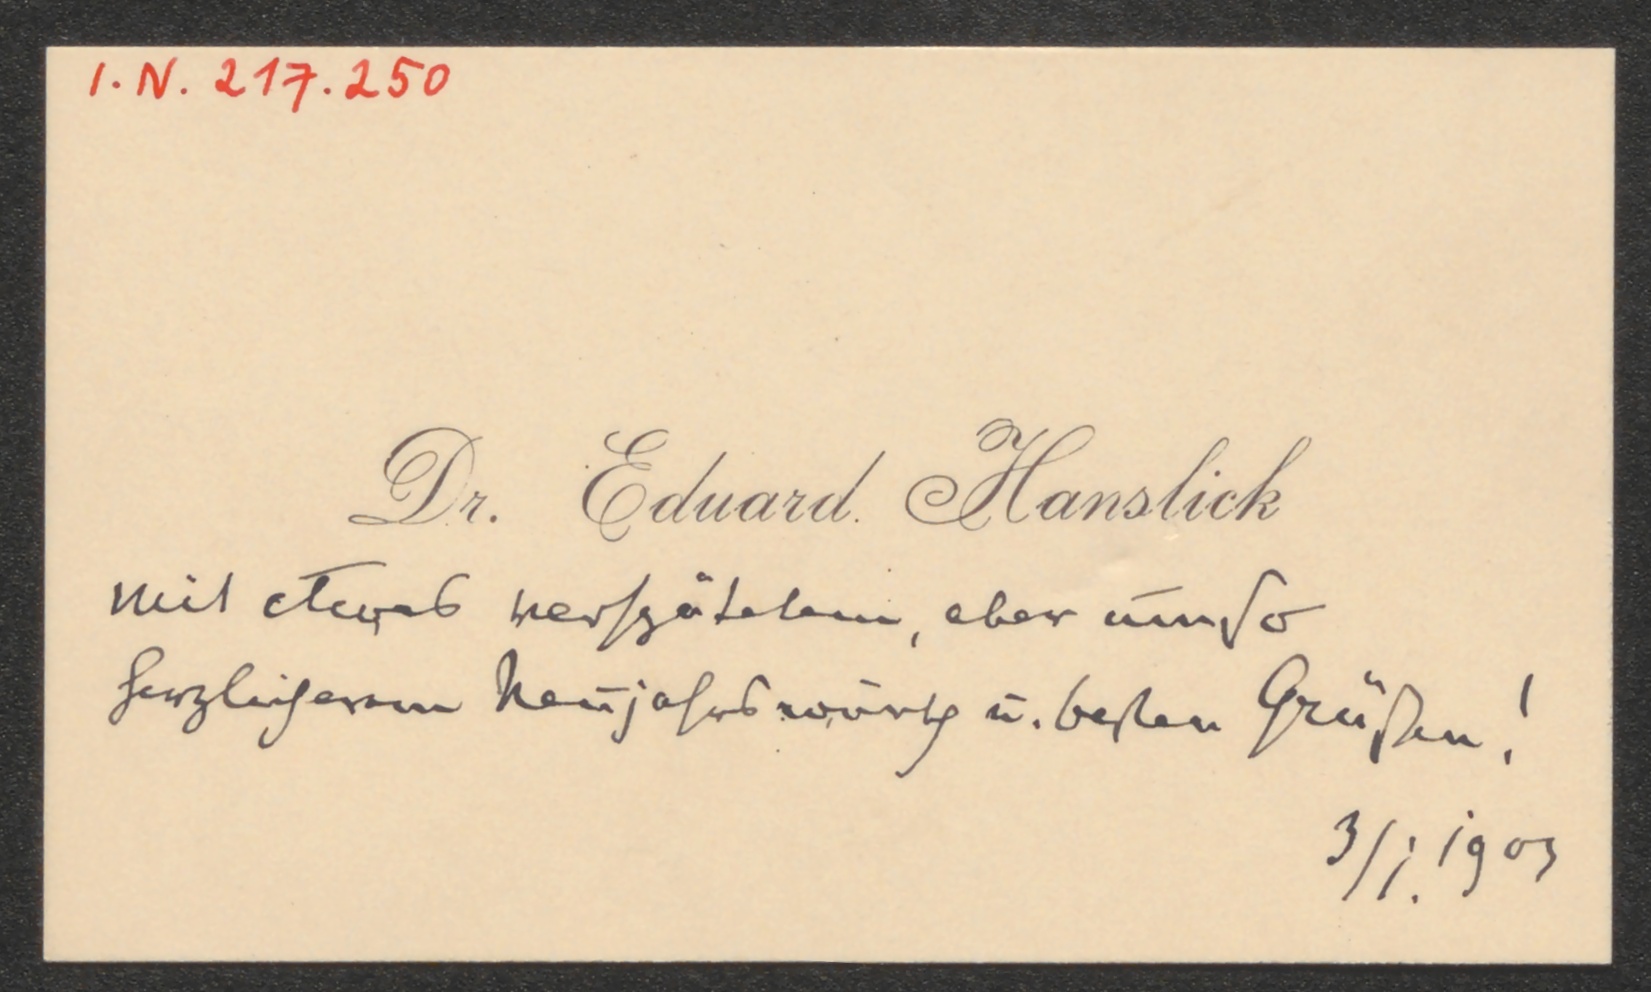 I.N. 217.250
Dr. Eduard Hanslick
mit etwas verspätetem, aber umso
herzlicherem Neujahrswunsch u. besten Grüßen!
3/I. 1903